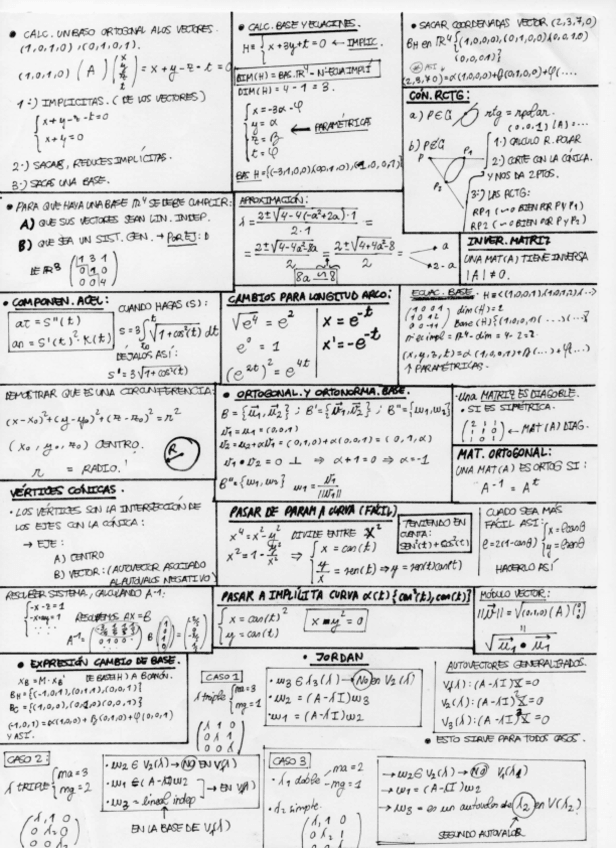 • CALC. UN BASO ORTOGONAL A LOS VECTORES.
(1,0,1,0), (0,1,0,1).
(1,0,1,0) (A) (x y z t) = x + y - z - t = 0
1º) IMPLICITAS. (DE LOS VECTORES)
{ x + y - z - t = 0
x + y = 0
2º) SACAS, REDUCES IMPLÍCITAS.
3º) SACAS UNA BASE.
• CALC. BASE Y ECUACIONES.
H = { x + 3y + t = 0 ← IMPLIC.
DIM(H) = BAS. ℝ⁴ - Nº ECUA IMPLÍ
DIM(H) = 4 - 1 = 3.
{ x = -3α - φ
y = α
z = β
t = φ
← PARAMÉTRICAS
BAS H = {(-3,1,0,0)(0,0,1,0)(-1,0,0,1)}
• SACAR COORDENADAS VECTOR (2,3,7,0)
BH en ℝ⁴ {(1,0,0,0),(0,1,0,0)(0,0,1,0)
(0,0,0,1)}
ASI
(2,3,7,0) = α(1,0,0,0) + β(0,1,0,0) + φ(....
CÓN. RCTG:
a) P∈C
rtg = rpolar.
(0,0,1)(A) = ...
b) P∉C
P
P1
P2
1º) CALCULO R. POLAR
2º) CORTE CON LA CÓNICA.
Y NOS DA 2 PTOS.
3º) LAS RCTG:
RP1 (→ BIEN POR P Y P1)
RP2 (→ BIEN POR P Y P2)
• PARA QUE HAYA UNA BASE ℝ⁴ SE DEBE CUMPLIR:
A) QUE SUS VECTORES SEAN LIN. INDEP.
B) QUE SEA UN SIST. GEN. → POR EJ:
DE ℝ³ (1 3 1
0 1 0
0 0 4)
APROXIMACIÓN:
λ = 2 ± √4 - 4(-a² + 2a)·1 / 2·1 =
= 2 ± √4 - 4a² - 8a / 2 = 2 ± √4 + 4a² - 8 / 2 → a
→ 2 - a
8a ≌ 8
INVER. MATRIZ
UNA MAT(A) TIENE INVERSA
|A| ≠ 0.
• COMPONEN. ACEL:
aT = S''(t)
an = S'(t)² · K(t)
CUANDO HAGAS (S):
S = ∫ √1 + cos²(t) dt
DÉJALOS ASÍ:
S' = 3√1 + cos²(t)
CAMBIOS PARA LONGITUD ARCO:
√e⁴ = e²
e⁰ = 1
(e²ᵗ)² = e⁴ᵗ
x = e⁻ᵗ
x' = -e⁻ᵗ
EQUAC. BASE.
dim(H) = 2
Base(H) {(1,0,0,1)(...)}
nº ec impl = ℝ⁴ - dim = 4 - 2 = 2.
(x,y,z,t) = α(1,0,0,1) + β(...) + φ(...
↑ PARAMÉTRICAS.
DEMOSTRAR QUE ES UNA CIRCUNFERENCIA:
(x - x₀)² + (y - y₀)² + (z - z₀)² = r²
(x₀, y₀, z₀) CENTRO.
r = RADIO.
R
• ORTOGONAL. Y ORTONORMA. BASE.
B = {u⃗₁, u⃗₂}; B' = {v⃗₁, v⃗₂}; B'' = {w₁, w₂}
v₁ = u₁ = (0,0,1)
v₂ = u₂ + αv₁ = (0,1,0) + α(0,0,1) = (0,1,α)
v₁ • v₂ = 0 ⊥ ⇒ α + 1 = 0 ⇒ α = -1
B'' = {w₁, w₂} w₁ = v₁ / ||v₁||
• Una MATRIZ ES DIAGOBLE.
• SI ES SIMÉTRICA.
(2 1 1
1 1 0
1 0 1) ← MAT(A) DIAG.
MAT. ORTOGONAL:
UNA MAT(A) ES ORTOG SI:
A⁻¹ = Aᵗ
VÉRTICES CÓNICAS.
• LOS VÉRTICES SON LA INTERSECCIÓN DE
LOS EJES CON LA CÓNICA:
→ EJE:
A) CENTRO
B) VECTOR: (AUTOVECTOR ASOCIADO
AL AUTOVALS NEGATIVO)
PASAR DE PARAM A CURVA (FACIL)
x⁴ = x² - y² DIVIDE ENTRE X²
x² = 1 - y²/x² ⇒ { x = cos(t)
y/x = sen(t) ⇒ y = sen(t)cos(t)
TENIENDO EN
CUENTA:
SEN²(t) + COS²(t)
CUADO SEA MÁS
FÁCIL ASÍ:
ρ = 2(1 - cosθ) { x = ρcosθ
y = ρsenθ
HACERLO ASÍ
RESOLVER SISTEMA, CALCULANDO A⁻¹:
{ -x - z = 1
-x + y = 1
RESOLVEMOS AX = B
A⁻¹ =
B
PASAR A IMPLÍCITA CURVA α(t) {cos²(t), cos(t)}
{ x = cos²(t)
y = cos(t)
x = y² = 0
MÓDULO VECTOR:
||v⃗|| = √(1,0,0)(A)
√u⃗₁ • u⃗₁
• EXPRESIÓN CAMBIO DE BASE.
XB = M · XB' DE BASE(H) A B CANÓN.
BH = {(-1,0,1), (0,1,1), (0,0,1)}
BC = {(1,0,0), (0,1,0)(0,0,1)}
(-1,0,1) = α(1,0,0) + β(0,1,0) + φ(0,0,1)
Y ASÍ.
• JORDAN
CASO 1
λ triple { ma = 3
mg = 1
(λ 1 0
0 λ 1
0 0 λ)
• w₃ ∈ V₃(λ) → No en V₂(λ)
• w₂ = (A - λI)w₃
• w₁ = (A - λI)w₂
AUTOVECTORES GENERALIZADOS.
V₁(λ): (A - λI)X = 0
V₂(λ): (A - λI)²X = 0
V₃(λ): (A - λI)³X = 0
• ESTO SIRVE PARA TODOS CASOS.
CASO 2:
λ TRIPLE { ma = 3
mg = 2
(λ 1 0
0 λ 0
0 0 λ)
• w₂ ∈ V₂(λ) → NO EN V₁(λ)
• w₁ ∈ (A - λI)w₂
→ EN V₁(λ)
• w₃ = lineal indep
EN LA BASE DE V₁(λ)
CASO 3
• λ₁ doble { ma = 2
mg = 1
• λ₂ simple.
(λ₁ 1 0
→ w₂ ∈ V₂(λ) → NO V₁(λ)
→ w₁ = (A - λI)w₂
→ w₃ = es un autovalor de λ₂ en V(λ₂)
SEGUNDO AUTOVALOR